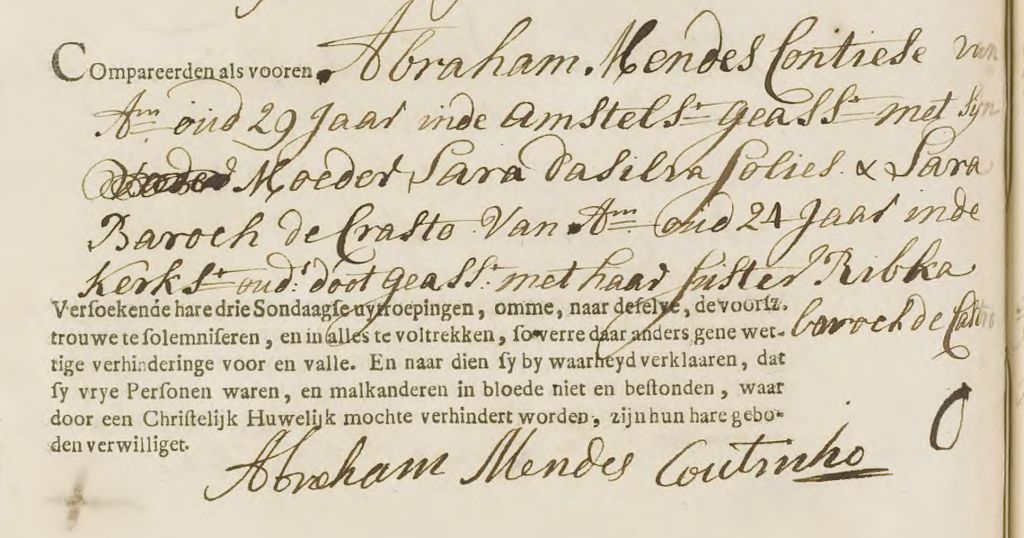 COmpareerden als vooren. Abraham. Mendes Contiese van
Am oud 29 Jaar inde Amstelst geasst met Sijn
Moeder Sara dasilva solies & Sara
Baroch de Crasto Van Am oud 24 Jaar inde
Kerkst oudrs doot geasst met haar suster Ribka
baroch de Castro
Versoekende hare drie Sondaagse uytroepingen, omme, naar deselve, de voorsz.
trouwe te solemniseren, en in alles te voltrekken, so verre daar anders gene wet-
tige verhinderinge voor en valle. En naar dien sy by waarheyd verklaaren, dat
sy vrye Personen waren, en malkanderen in bloede niet en bestonden, waar
door een Christelijk Huwelijk mochte verhindert worden, zijn hun hare gebo-
den verwilliget.
Abraham Mendes Coutinho